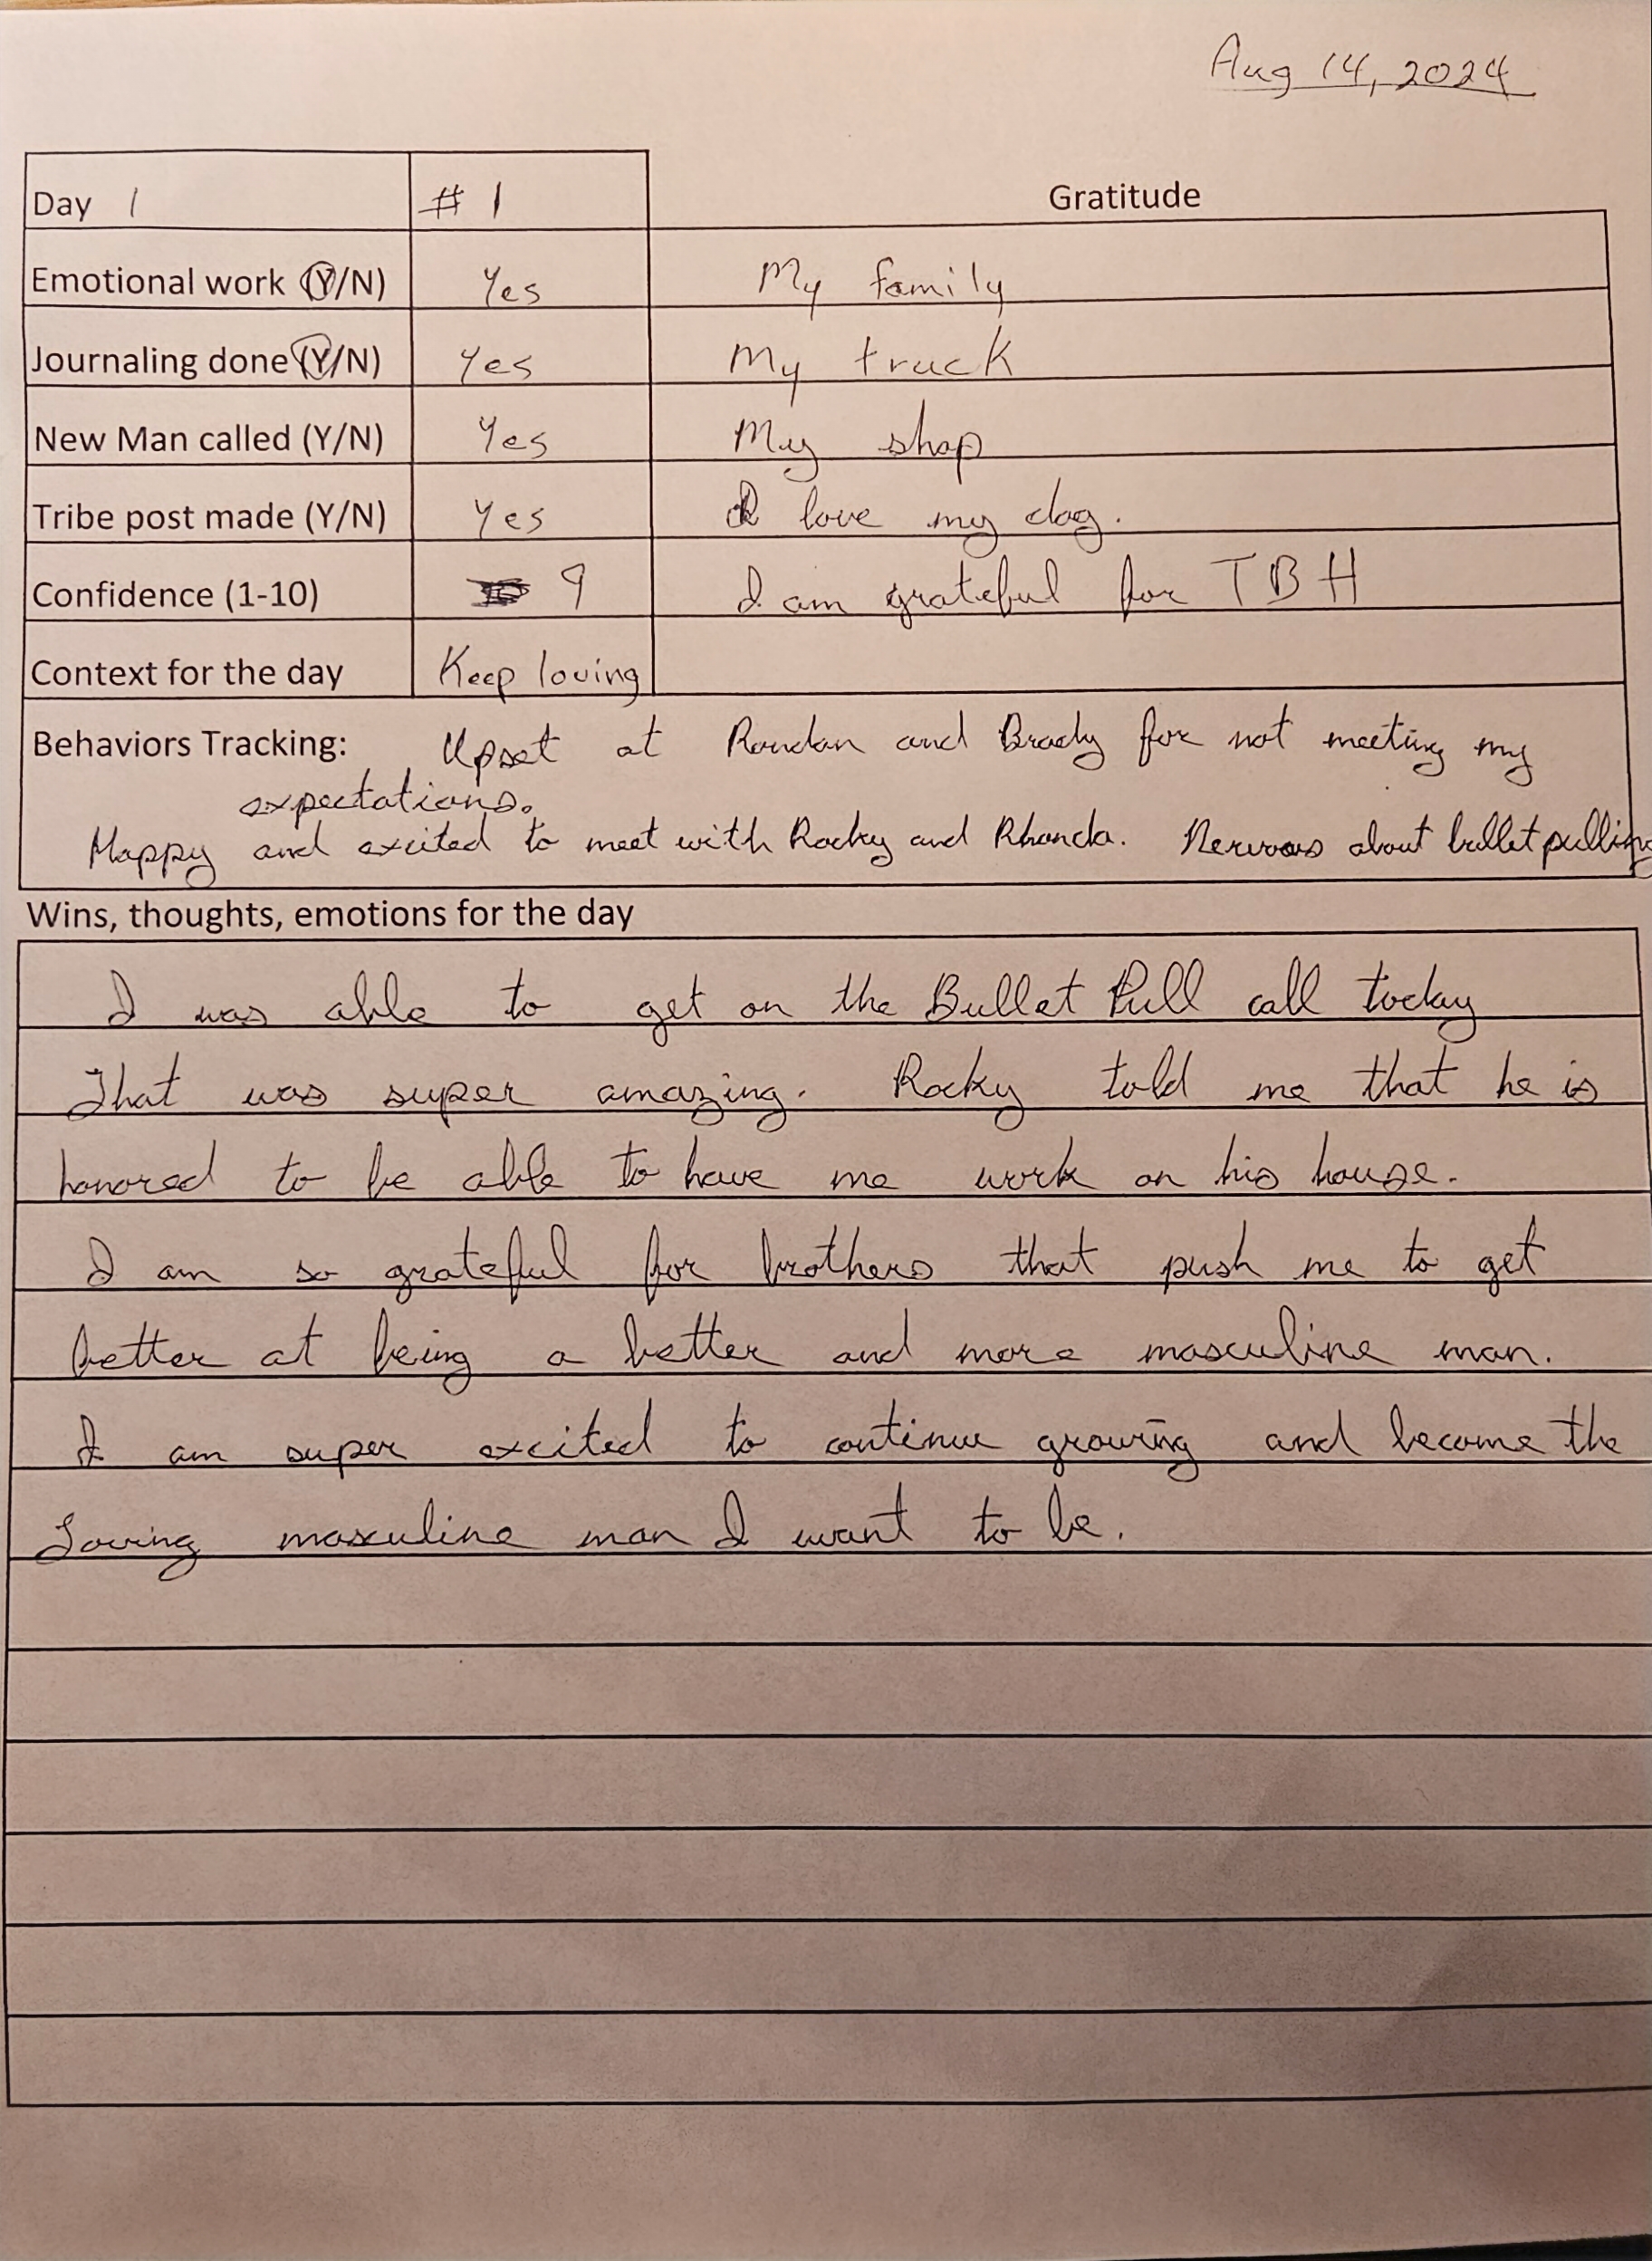 Aug 14, 2024
Day 1 # 1 Gratitude
Emotional work (Y/N) Yes My family
Journaling done (Y/N) Yes My truck
New Man called (Y/N) Yes My shop
Tribe post made (Y/N) Yes I love my dog.
Confidence (1-10) 9 I am grateful for TBH
Context for the day Keep loving
Behaviors Tracking: Upset at and Brady for not meeting my
expectations.
Happy and excited to meet with Rocky and Rhonda. Nervous about bullet pulling
Wins, thoughts, emotions for the day
I was able to get on the Bullet Pull call today
That was super amazing. Rocky told me that he is
honored to be able to have me work on his house.
I am so grateful for brothers that push me to get
better at being a better and more masculine man.
I am super excited to continue growing and become the
Loving masculine man I want to be.